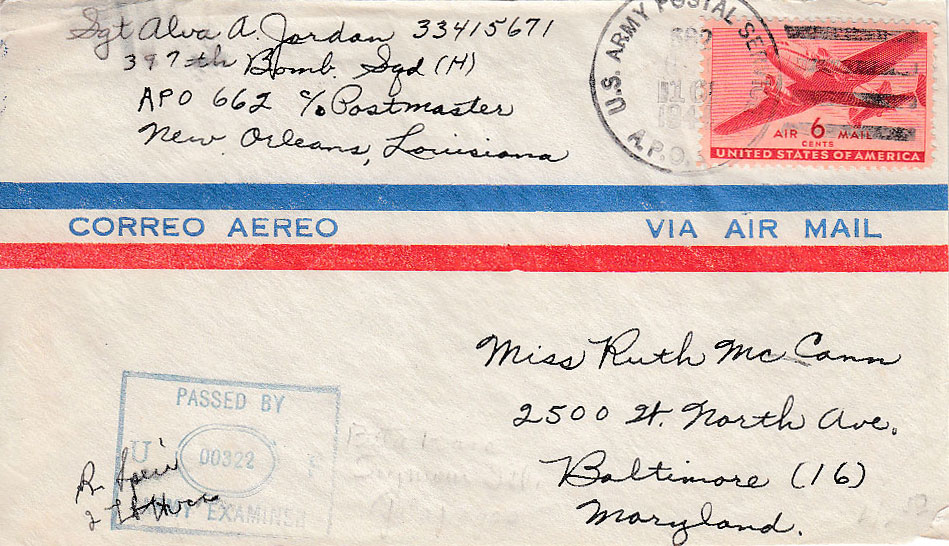 Sgt Alva A. Jordan 33415671
397th Bomb. Sqd (H)
APO 662 c/o Postmaster
New Orleans, Louisiana
U.S. ARMY POSTAL
A.P.O.
AIR 6 MAIL
CENTS
UNITED STATES OF AMERICA
CORREO AEREO
VIA AIR MAIL
Miss Ruth McCann
2500 W. North Ave.
Baltimore (16)
Maryland.
PASSED BY
U
00322
ARMY EXAMINER
R.
2